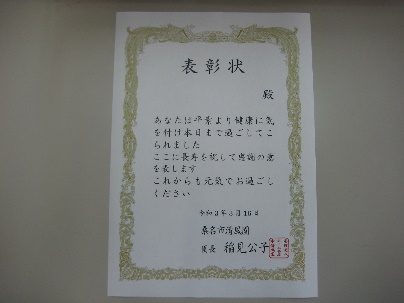 表彰状
殿
あなたは平素より健康に気
を付け本日まで過ごしてこ
られました
ここに長寿を祝して感謝の意
を表します
これからも元気でお過ごし
ください
令和3年3月16日
桑名市清風園
園長 稲見公子